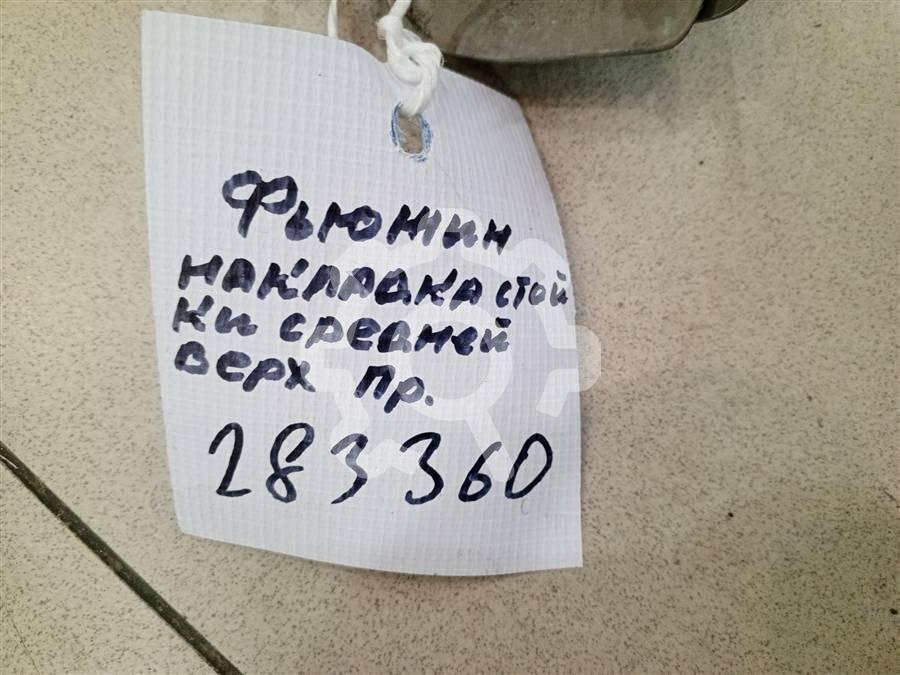 Фьюжин
накладка стой
ки средней
верх пр.
283360